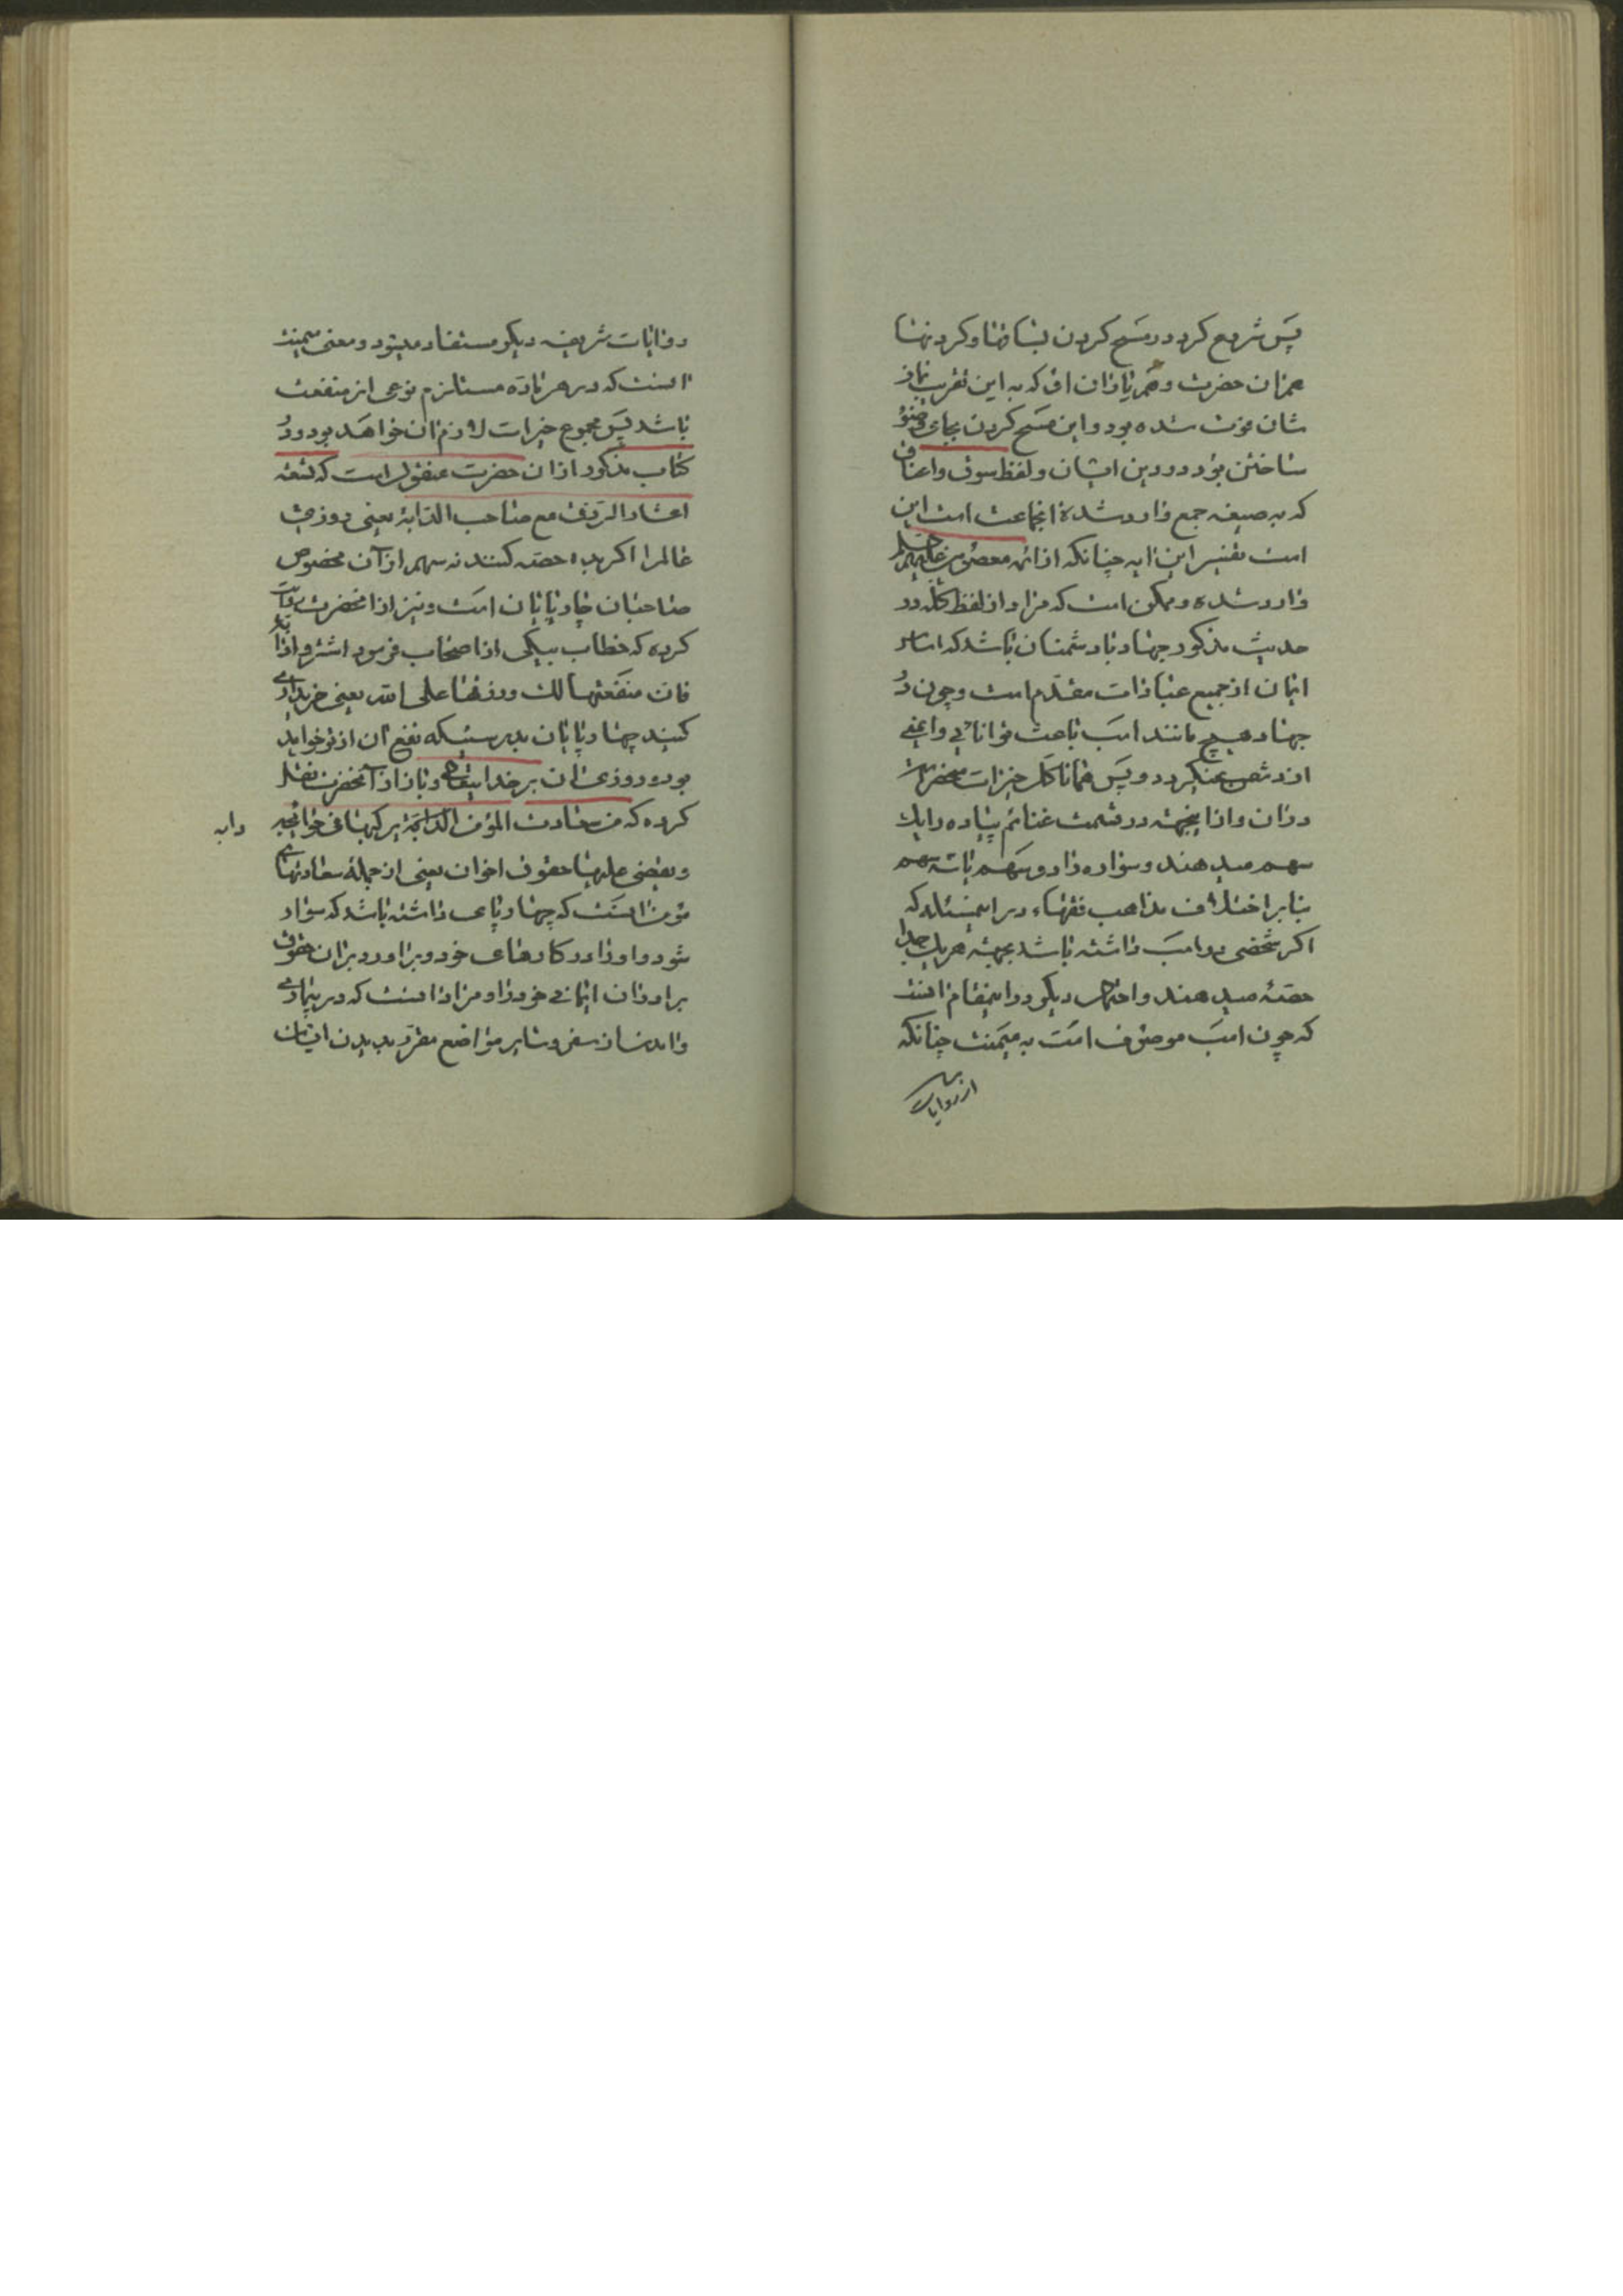 پس شروع کرد در مسح کردن بساقها و کردنها
همزان حضرت و همرنازان او که به این تقریب نماز
شان فوت شده بود و این مسح کردن بجای وضو
ساختن بود در دین ایشان و لفظ سوق و اعناق
که به صیغه جمع وارد شده انجاعت است این
است تفسیر این ایه چنانکه از ائمه معصومین علیهم
وارد شده و ممکن است که مراد از لفظ کله در
حدیث مذکور جهاد با دشمنان باشد که اساس
ایمان از جمیع عبادات مقدم است و چون در
جهاد هیچ مانند اسب باعث توانائی و ایمنی
از دشمن نمیگردد و پس همانا کل خیرات منحصر است
دران و ازاینجهته در قسمت غنائم پیاده را یک
سهم میدهند و سواره را دو سهم یا سه سهم
بنابر اختلاف مذاهب فقهاء در اینمسئله که
اکر شخصی دو اسب داشته باشد بجهته هر یک جدا
حصه میدهند و احتمال دیکر در اینمقام انست
که چون اسب موصوف است به میمنت چنانکه
از روایات
روایات شریفه دیکر مستفاد میشود و معنی میمنت
انست که در هر ماده مستلزم نوعی از منفعت
باشد پس مجموع خیرات لازم ان خواهد بود و در
کتاب مذکور از ان حضرت منقول است که تسعة
اعشار الرزق مع صاحب الدابة یعنی روزی
عالم را اکر بده حصه کنند نه سهم از ان مخصوص
صاحبان چارپایان است و نیز از انحضرت روایت
کرده که خطاب بیکی از اصحاب فرمود اشتر دابة
فان منفعتها لک و رزقها علی الله یعنی خریداری
کنید چهارپایان بدرستیکه نفع ان از تو خواهد
بود و روزی ان بر خدایتعالی و باز از انحضرت نقل
کرده که من سعادت المؤمن الدابة یرکبها فی حوائجه
دابه
و یقضی علیها حقوق اخوان یعنی از جمله سعادتهای
مؤمن انست که چهارپای داشته باشد که سوار
شود و او را در کارهای خود و برآورد بران حقوق
برادران ایمانی خود را و مراد انست که در بیماری
و امدن از سفر و سایر مواضع مقرر بدیدن ایشان